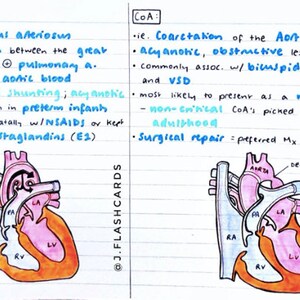 us arteriosus
between the great
⊕ pulmonary a.
aortic blood
shunting; acyanotic
in preterm infants
atally w/ NSAIDs or kept
staglandins (E1)
PA
LA
LV
RV
@J.FLASHCARDS
CoA:
· ie. Coarctation of the Aort
· Acyanotic, obstructive les
· commonly assoc. w/ bicuspid
and VSD
· most likely to present as a
- non-critical CoA's picked
adulthood
· Surgical repair = preferred Mx.
AORTA
DE
RA
PA
LA
LV
RV